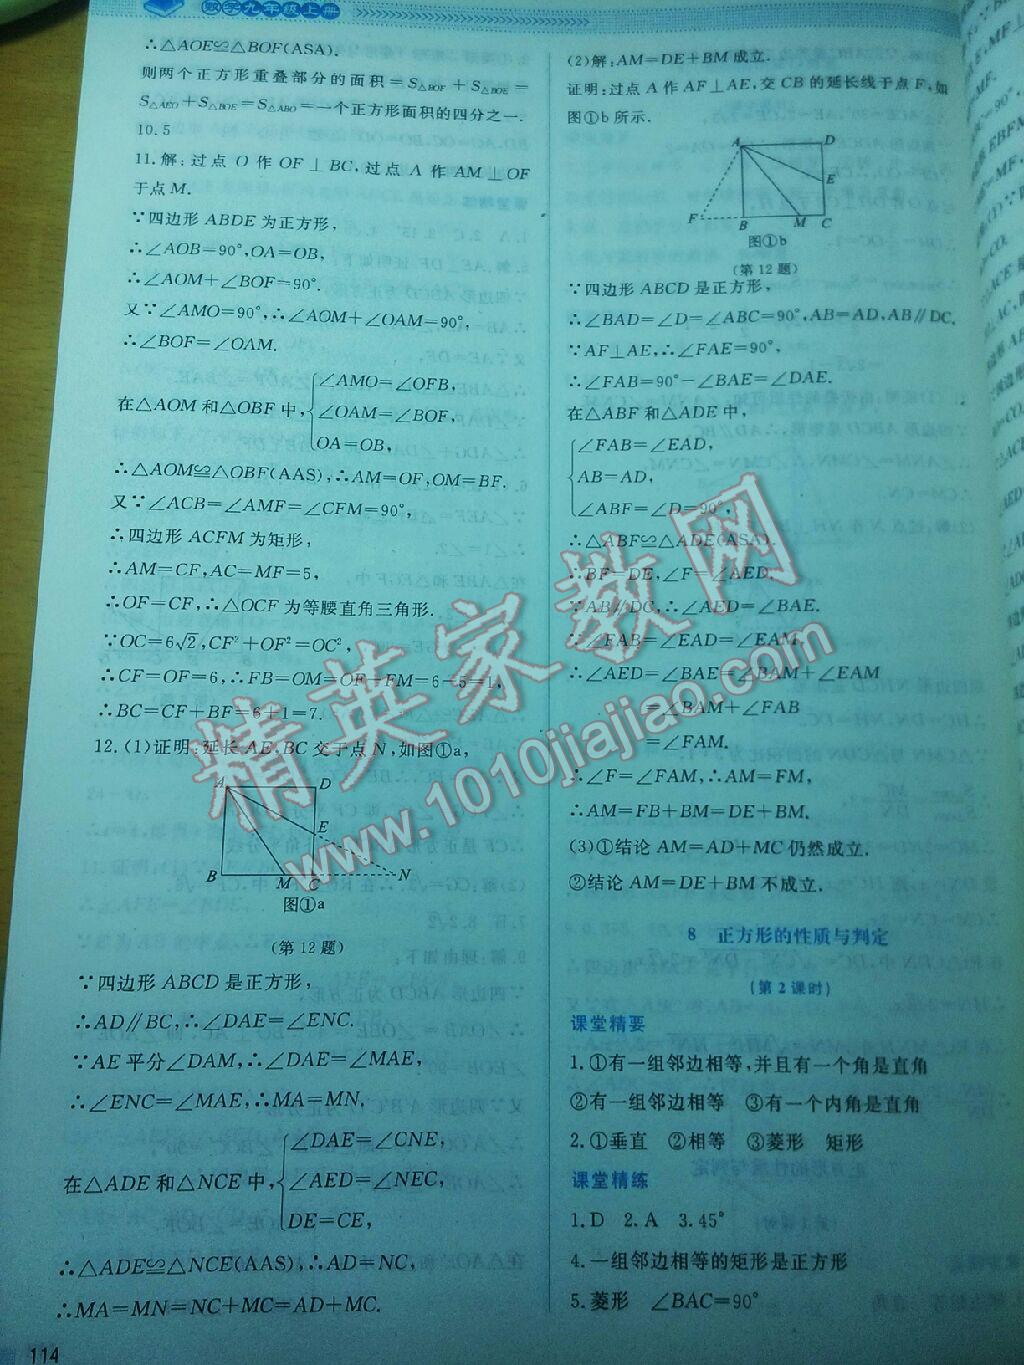 数学九年级上册
∴△AOE≌△BOF(ASA).
则两个正方形重叠部分的面积=S△BOF+S△BOE=
S△AEO+S△BOE=S△ABO=一个正方形面积的四分之一.
10.5
11.解:过点 O 作 OF⊥BC,过点 A 作 AM⊥OF
于点 M.
∵四边形 ABDE 为正方形,
∴∠AOB=90°,OA=OB,
∴∠AOM+∠BOF=90°.
又∵∠AMO=90°,∴∠AOM+∠OAM=90°,
∴∠BOF=∠OAM.
∠AMO=∠OFB,
在△AOM 和△OBF 中,{∠OAM=∠BOF,
OA=OB,
∴△AOM≌△OBF(AAS),∴AM=OF,OM=BF.
又∵∠ACB=∠AMF=∠CFM=90°,
∴四边形 ACFM 为矩形,
∴AM=CF,AC=MF=5,
∴OF=CF,∴△OCF 为等腰直角三角形.
∵OC=6√2,CF²+OF²=OC²,
∴CF=OF=6,∴FB=OM=OF-FM=6-5=1,
∴BC=CF+BF=6+1=7.
12.(1)证明:延长 AE、BC 交于点 N,如图①a,
A D
E
B M C N
图①a
(第 12 题)
∵四边形 ABCD 是正方形,
∴AD∥BC,∴∠DAE=∠ENC.
∵AE 平分∠DAM,∴∠DAE=∠MAE,
∴∠ENC=∠MAE,∴MA=MN,
∠DAE=∠CNE,
在△ADE 和△NCE 中,{∠AED=∠NEC,
DE=CE,
∴△ADE≌△NCE(AAS),∴AD=NC,
∴MA=MN=NC+MC=AD+MC.
114
(2)解:AM=DE+BM 成立.
证明:过点 A 作 AF⊥AE,交 CB 的延长线于点 F,如
图①b 所示.
A D
E
F B M C
图①b
(第 12 题)
∵四边形 ABCD 是正方形,
∴∠BAD=∠D=∠ABC=90°,AB=AD,AB∥DC.
∵AF⊥AE,∴∠FAE=90°,
∴∠FAB=90°-∠BAE=∠DAE.
在△ABF 和△ADE 中,
{∠FAB=∠EAD,
AB=AD,
∠ABF=∠D=90°,
∴△ABF≌△ADE(ASA).
∴BF=DE,∠F=∠AED.
∵AB∥DC,∴∠AED=∠BAE.
∵∠FAB=∠EAD=∠EAM,
∴∠AED=∠BAE=∠BAM+∠EAM
=∠BAM+∠FAB
=∠FAM.
∴∠F=∠FAM,∴AM=FM,
∴AM=FB+BM=DE+BM.
(3)①结论 AM=AD+MC 仍然成立.
②结论 AM=DE+BM 不成立.
8 正方形的性质与判定
(第 2 课时)
课堂精要
1.①有一组邻边相等,并且有一个角是直角
②有一组邻边相等 ③有一个内角是直角
2.①垂直 ②相等 ③菱形 矩形
课堂精练
1.D 2.A 3.45°
4.一组邻边相等的矩形是正方形
5.菱形 ∠BAC=90°
精英家教网
www.1010jiajiao.com